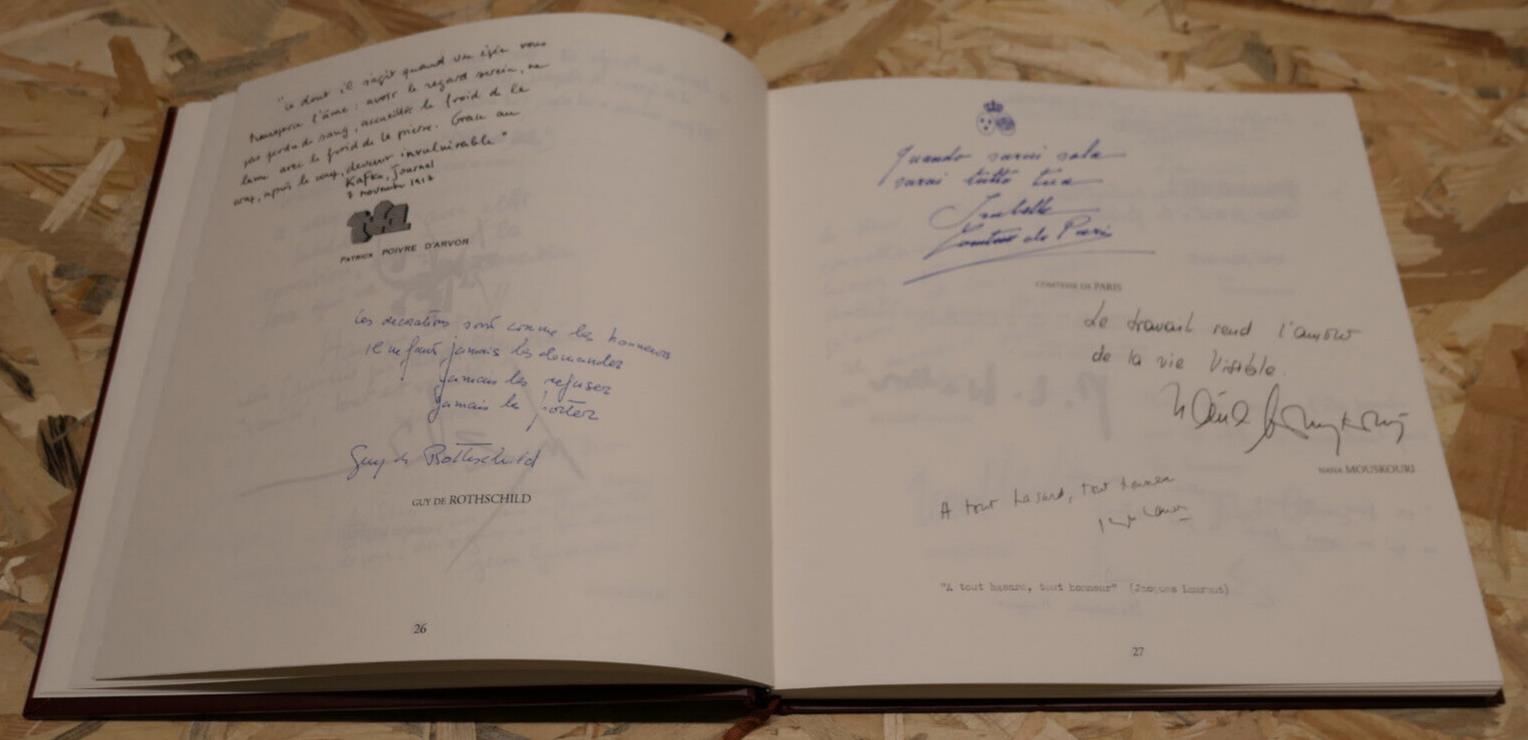 "Ce dont il s'agit quand une épée vous
transperce l'âme : avoir le regard serein, ne
pas perdre de sang, accueillir le froid de la
lame avec le froid de la pierre. Grâce au
coup, après le coup, devenir invulnérable"
Kafka, Journal
novembre
PATRICK POIVRE D'ARVOR
Les decorations sont comme les honneurs
il ne faut jamais les demander
jamais les refuser
jamais les porter
Guy de Rothschild
GUY DE ROTHSCHILD
26
Quando sarai sola
sarai tutta tua
Isabelle
Comtesse de Paris
COMTESSE DE PARIS
Le travail rend l'amour
de la vie visible.
Nana Mouskouri
NANA MOUSKOURI
A tout hasard, tout honneur
"A tout hasard, tout honneur" (Jacques Laurent)
27